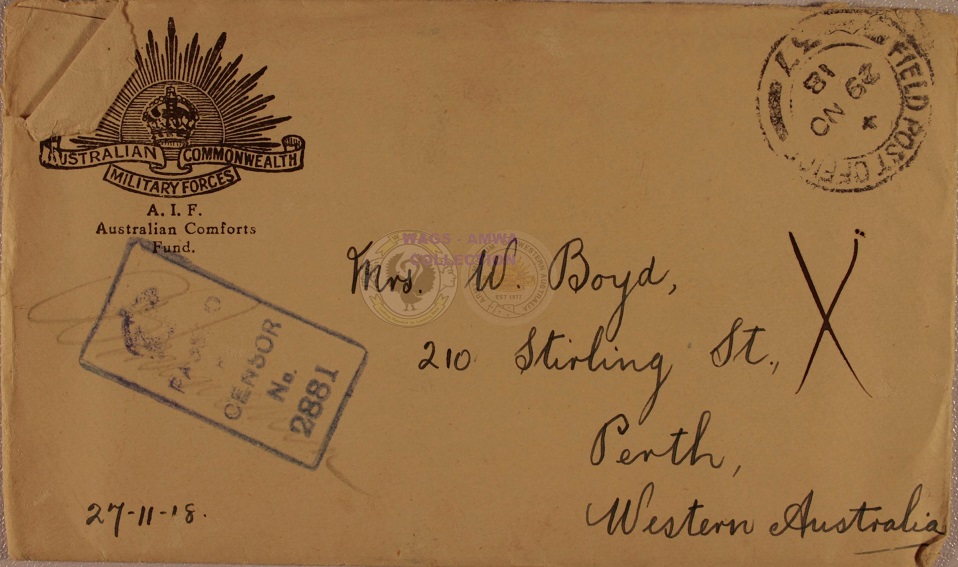 AUSTRALIAN COMMONWEALTH
MILITARY FORCES
A. I. F.
Australian Comforts
Fund.
FIELD POST OFFICE
29 NO
18
WAGS - AMWA
COLLECTION
Mrs. W. Boyd,
210 Stirling St.,
Perth,
Western Australia
X
PASSED
CENSOR
No.
2881
27-11-18.